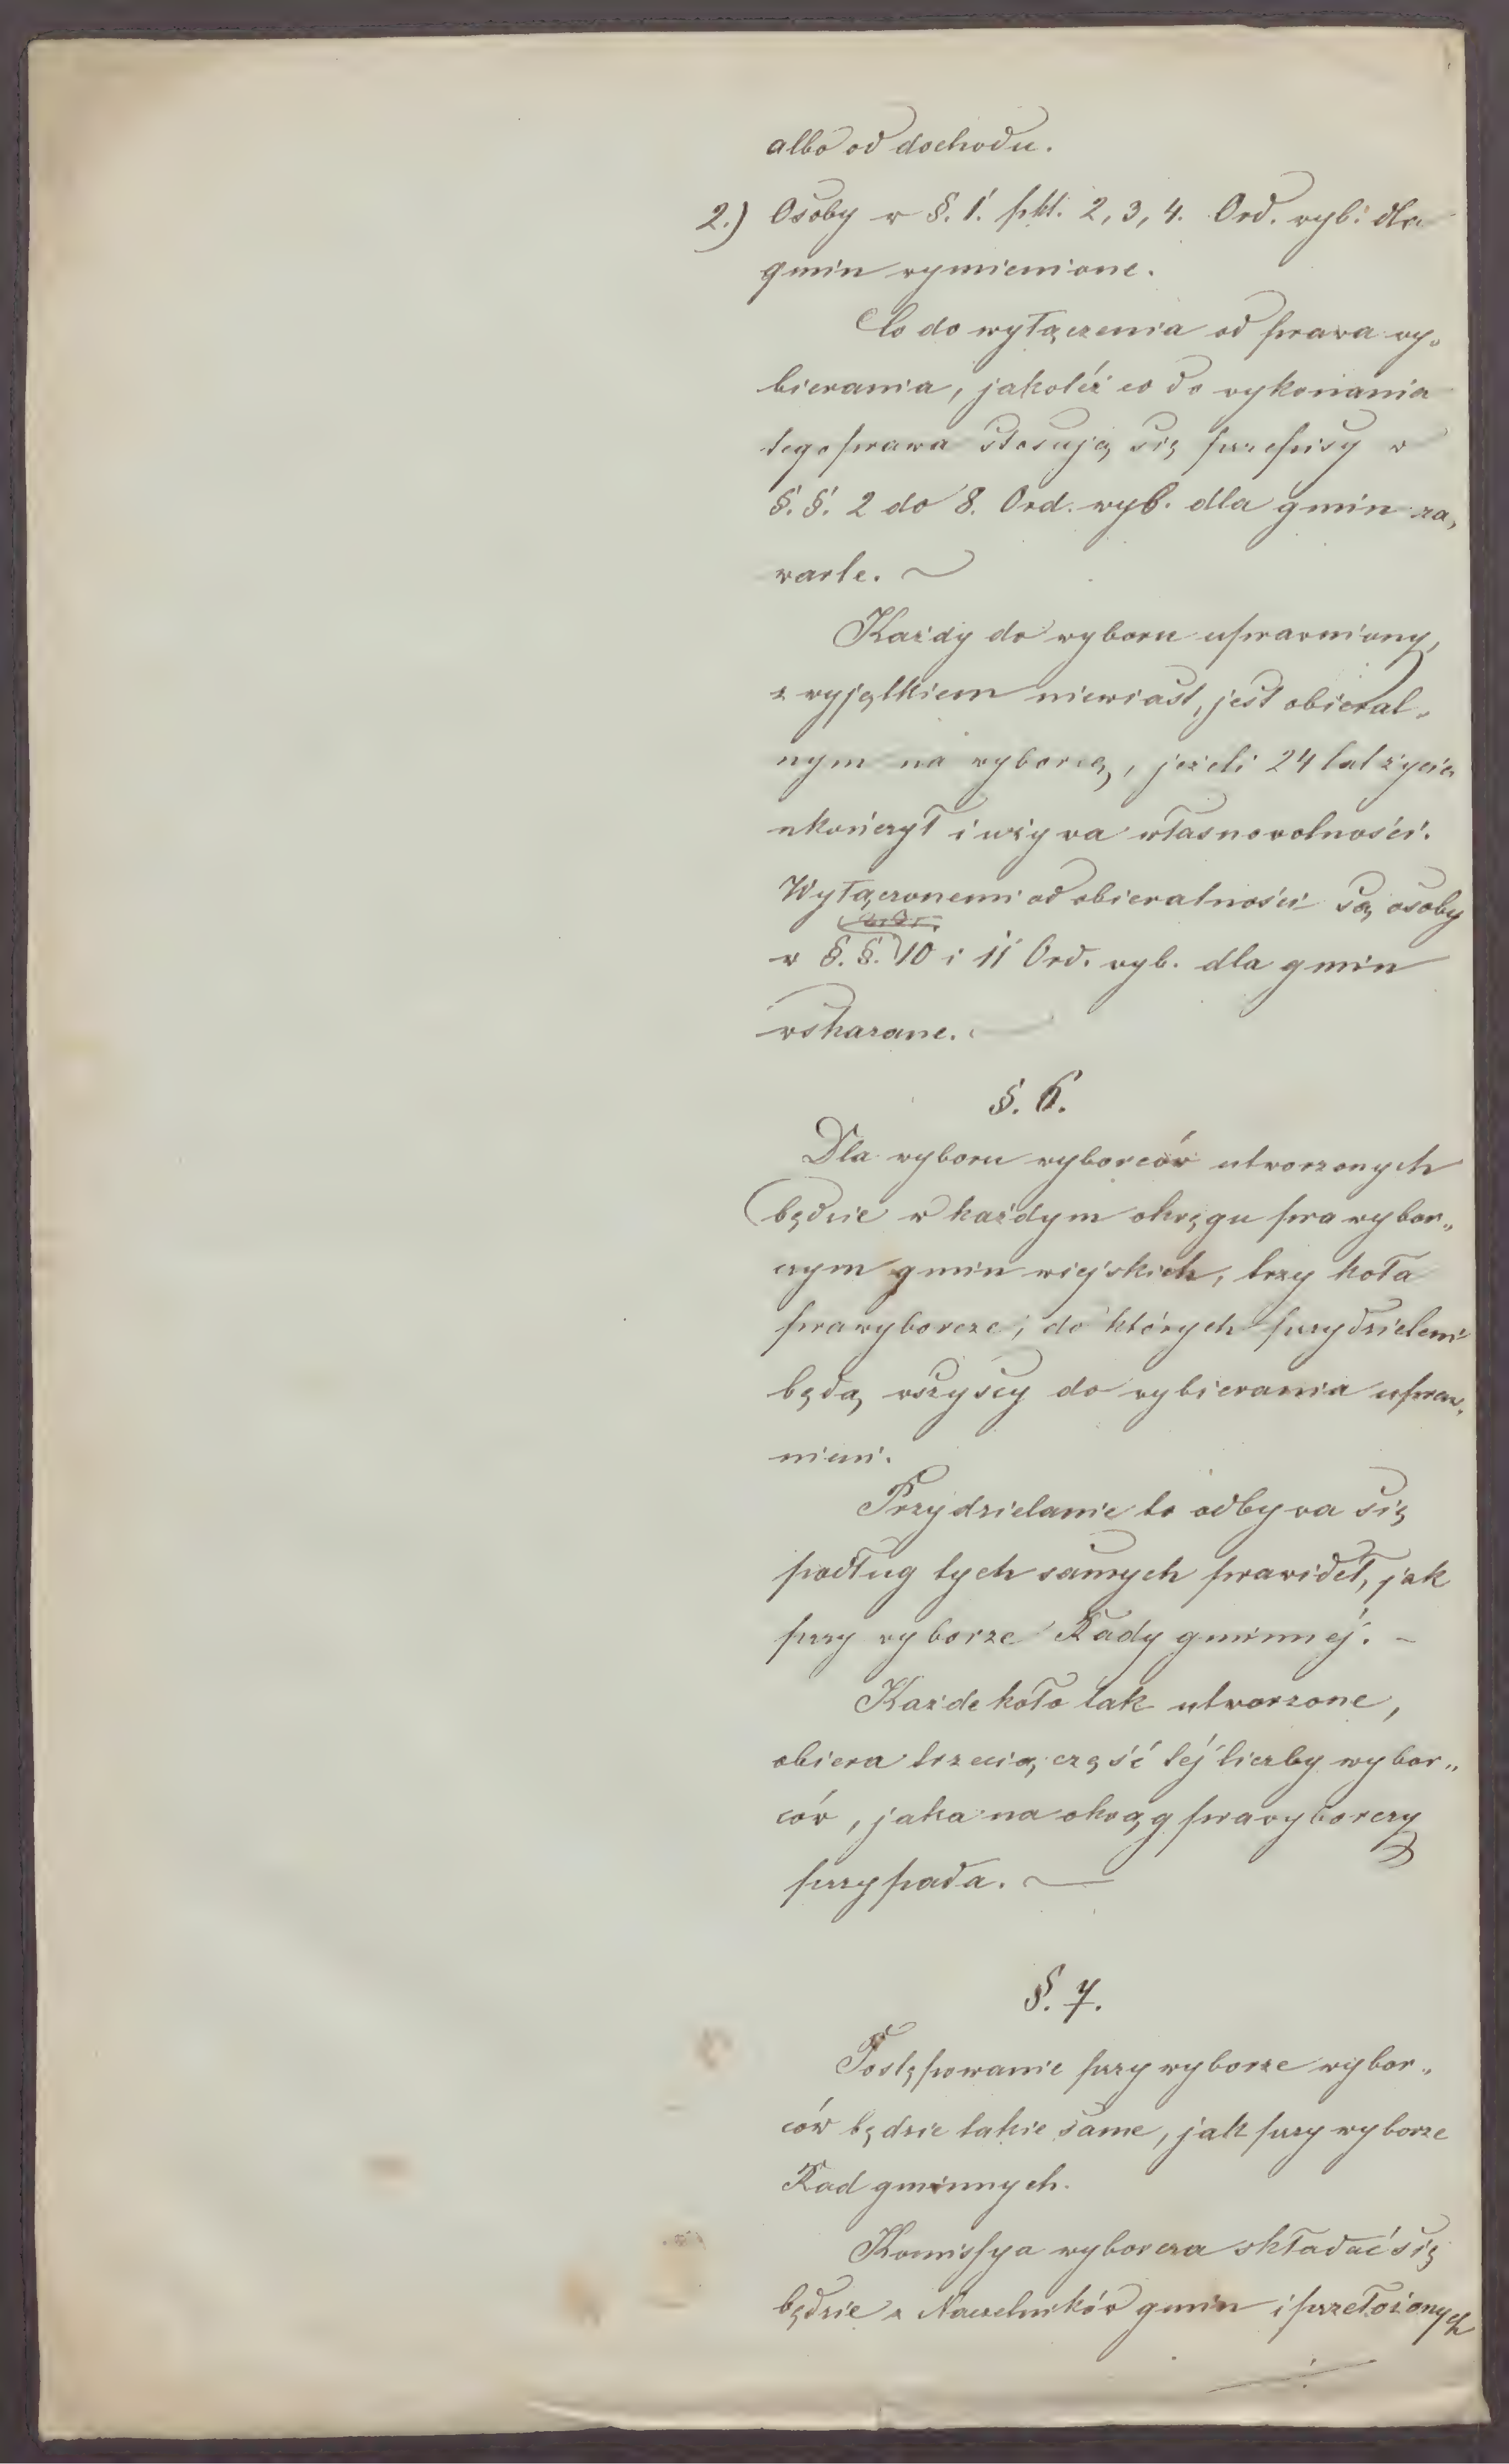 albo od dochodu.
2.) Osoby w §. 1. pkt. 2, 3, 4. Ord. wyb. dla
gmin wymienione.
Co do wyłączenia od prawa wy-
bierania, jakotéż co do wykonania
tego prawa stosują się przepisy w
§. §. 2 do 8. Ord. wyb. dla gmin za-
warte.
Każdy do wyboru uprawniony,
z wyjątkiem niewiast, jest obieral-
nym na wyborcę, jeżeli 24 lat życia
ukończył i używa własnowolności.
Wyłączonemi od obieralności są osoby
w §. §. 10 i 11 Ord. wyb. dla gmin
wskazane.
§. 6.
Dla wyboru wyborców utworzonych
będzie w każdym okręgu prawybor-
czym gmin wiejskich, trzy koła
prawyborcze, do których przydzieleni
będą wszyscy do wybierania upraw-
nieni.
Przydzielanie to odbywa się
podług tych samych prawideł, jak
przy wyborze Rady gminnéj. -
Każde koło tak utworzone,
obiera trzecią część téj liczby wybor-
ców, jaka na okrąg prawyborczy
przypada.
§. 7.
Postępowanie przy wyborze wybor-
ców będzie takie same, jak przy wyborze
Rad gminnych.
Komissya wyborcza składać się
będzie z Naczelników gmin i przełożonych